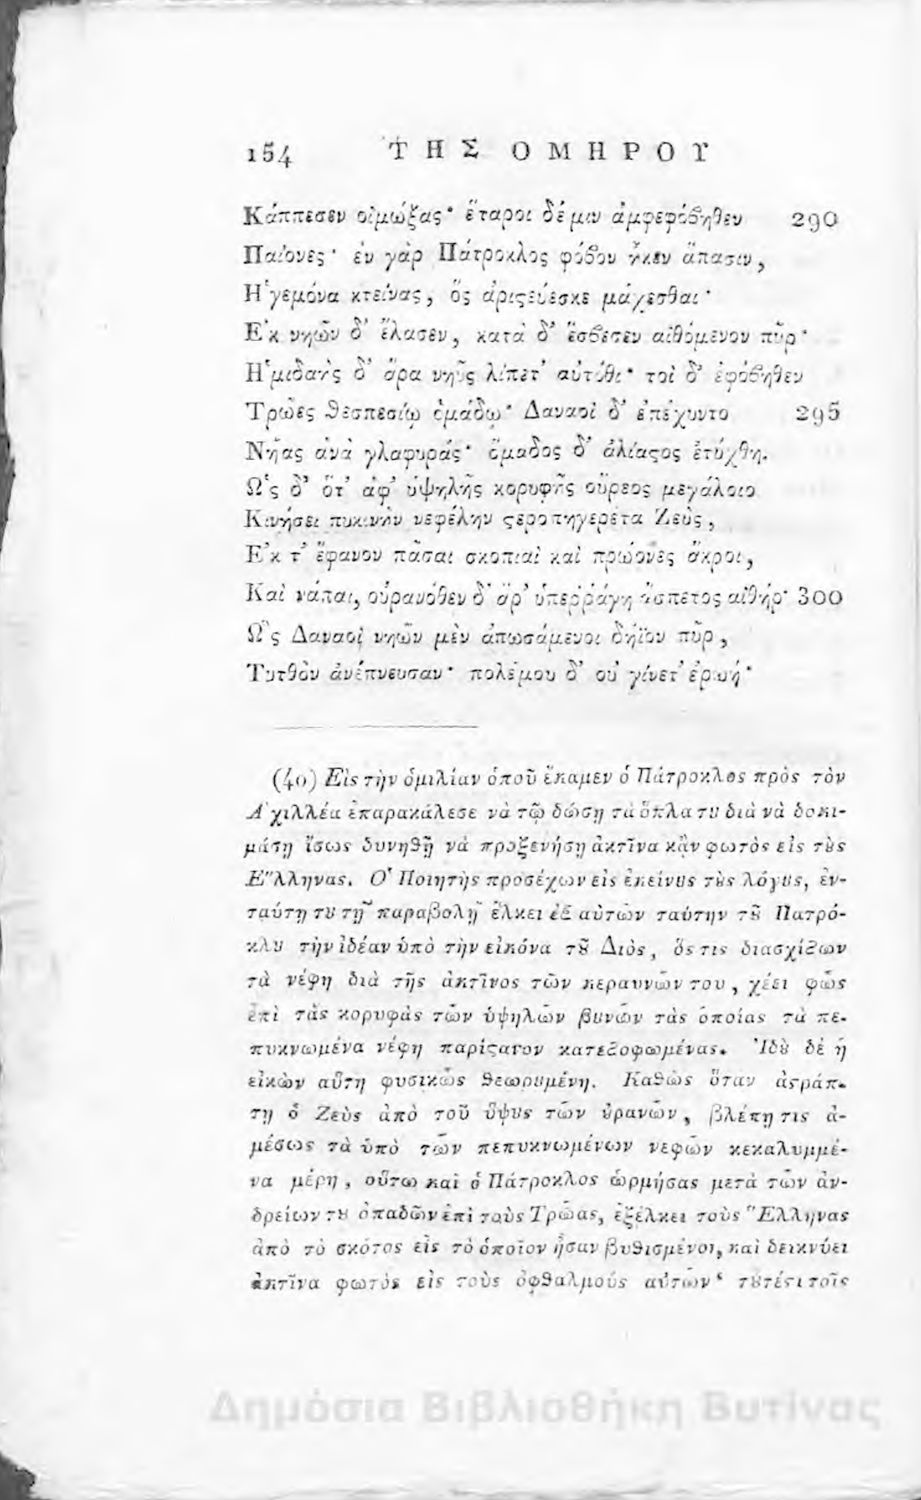 154 ΤΗΣ ΟΜΗΡΟΥ
Κάππεσεν οἰμώξας· ἕταροι δέ μιν ἀμφεφόβηθεν 290
Παίονες· ἐν γὰρ Πάτροκλος φόβον ἧκεν ἅπασιν,
Η῾γεμόνα κτείνας, ὃς ἀριςεύεσκε μάχεσθαι·
Ε᾿κ νηῶν δ᾽ ἔλασεν, κατὰ δ᾽ ἔσβεσεν αἰθόμενον πῦρ·
Η῾μιδαὴς δ᾽ ἄρα νηῦς λίπετ᾽ αὐτόθι· τοὶ δ᾽ ἐφόβηθεν
Τρῶες θεσπεσίῳ ὁμάδῳ· Δαναοὶ δ᾽ ἐπέχυντο 295
Νῆας ἀνὰ γλαφυράς· ὅμαδος δ᾽ ἀλίαςος ἐτύχθη.
Ω῾ς δ᾽ ὅτ᾽ ἀφ᾽ ὑψηλῆς κορυφῆς οὔρεος μεγάλοιο
Κινήσει πυκινὴν νεφέλην ςεροπηγερέτα Ζεὺς,
Ε῎κ τ᾽ ἔφανον πᾶσαι σκοπιαὶ καὶ πρώονες ἄκροι,
Καὶ νάπαι, οὐρανόθεν δ᾽ ἄρ᾽ ὑπερῥάγη ἄσπετος αἰθήρ· 300
Ω῝ς Δαναοὶ νηῶν μὲν ἀπωσάμενοι δήϊον πῦρ,
Τυτθὸν ἀνέπνευσαν· πολέμου δ᾽ οὐ γίνετ᾽ ἐρωή·
(40) Εἰς τὴν ὁμιλίαν ὁποῦ ἔκαμεν ὁ Πάτροκλος πρὸς τὸν
Α᾿χιλλέα ἐπαρακάλεσε νὰ τῷ δώσῃ τὰ ὅπλα τȣ διὰ νὰ δοκι-
μάσῃ ἴσως δυνηθῇ νὰ προξενήσῃ ἀκτῖνα κἂν φωτὸς εἰς τȣς
Ε῞λληνας. Ο῾ Ποιητὴς προσέχων εἰς ἐκείνȣς τȣς λόγȣς, ἐν-
ταύτῃ τȣ τῇ παραβολῇ ἕλκει ἐξ αὐτῶν ταύτην τȣ Πατρό-
κλȣ τὴν ἰδέαν ὑπὸ τὴν εἰκόνα τȣ Διὸς, ὅς τις διασχίζων
τὰ νέφη διὰ τῆς ἀκτῖνος τῶν κεραυνῶν του, χέει φῶς
ἐπὶ τὰς κορυφὰς τῶν ὑψηλῶν βυνῶν τὰς ὁποίας τὰ πε-
πυκνωμένα νέφη παρίςανον κατεζοφωμένας. Ἰδȣ δὲ ἡ
εἰκὼν αὕτη φυσικῶς θεωρȣμένη. Καθὼς ὅταν ἀςράπ-
τῃ ὁ Ζεὺς ἀπὸ τοῦ ὕψȣς τῶν ȣρανῶν, βλέπῃ τις ἀ-
μέσως τὰ ὑπὸ τῶν πεπυκνωμένων νεφῶν κεκαλυμμέ-
να μέρη, οὕτω καὶ ὁ Πάτροκλος ὡρμήσας μετὰ τῶν ἀν-
δρείων τȣ ὀπαδῶν ἐπὶ τοὺς Τρῶας, ἐξέλκει τοὺς ῞Ελληνας
ἀπὸ τὸ σκότος εἰς τὸ ὁποῖον ἦσαν βυθισμένοι, καὶ δεικνύει
ἀκτῖνα φωτὸς εἰς τοὺς ὀφθαλμοὺς αὐτῶν· τȣτέςι τοῖς
Δημόσια Βιβλιοθήκη Βυτίνας